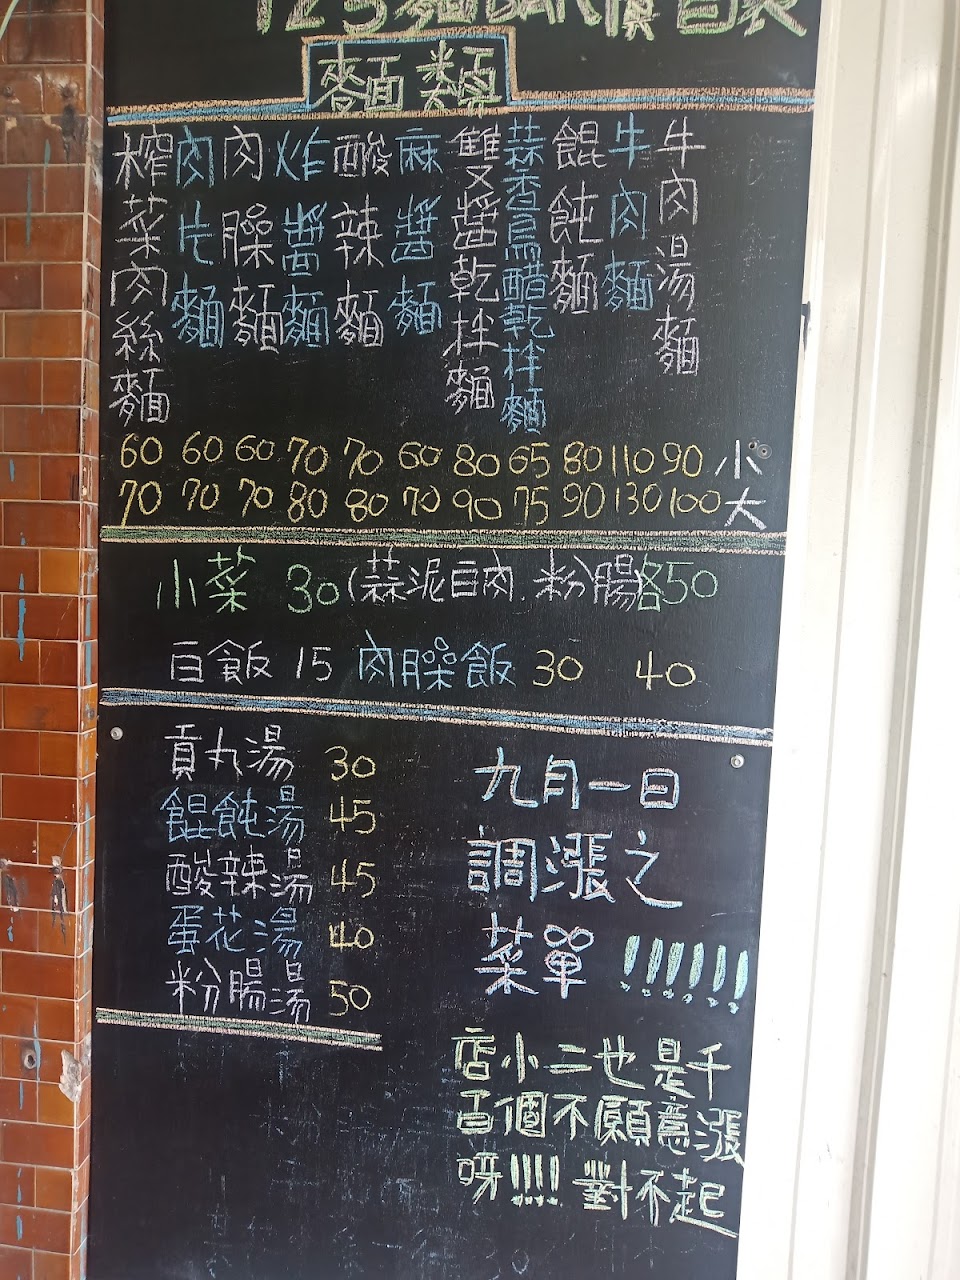 123麵BAR價目表
麵類
牛肉湯麵
牛肉麵
餛飩麵
蒜香烏醋乾拌麵
雙醬乾拌麵
麻醬麵
酸辣麵
炸醬麵
肉臊麵
肉片麵
榨菜肉絲麵
60 60 60 70 70 60 80 65 80 110 90 小
70 70 70 80 80 70 90 75 90 130 100 大
小菜 30 (蒜泥白肉.粉腸各50
白飯 15 肉臊飯 30 40
貢丸湯 30
餛飩湯 45
酸辣湯 45
蛋花湯 40
粉腸湯 50
九月一日
調漲之
菜單 !!!!!!
店小二也是千
百個不願意漲
呀!!!! 對不起